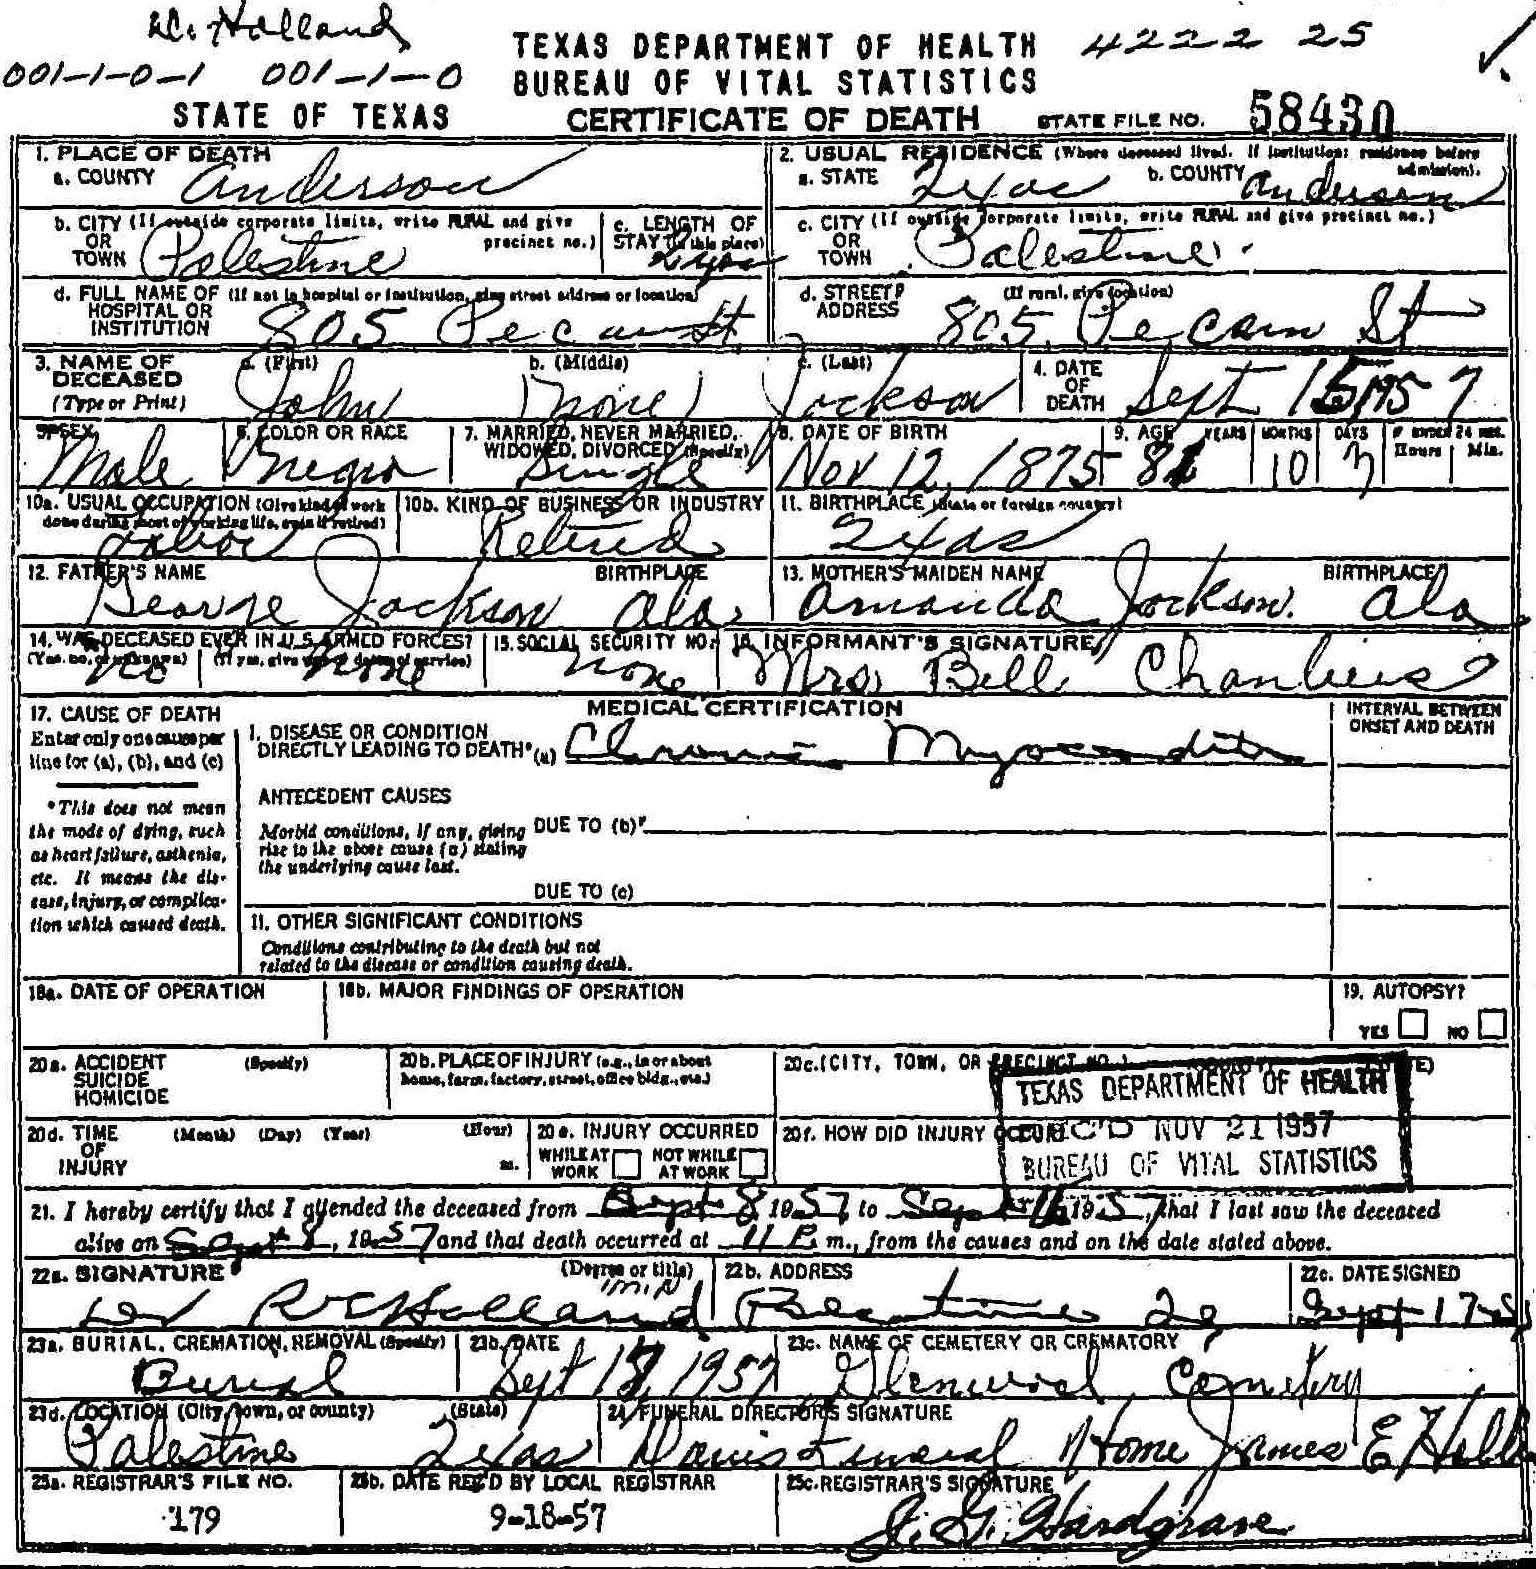 Dr. Holland
TEXAS DEPARTMENT OF HEALTH 4222 25
001-1-0-1 001-1-0 BUREAU OF VITAL STATISTICS
STATE OF TEXAS CERTIFICATE OF DEATH STATE FILE NO. 58430
1. PLACE OF DEATH
a. COUNTY Anderson
2. USUAL RESIDENCE (Where deceased lived. If institution: residence before admission).
a. STATE Texas b. COUNTY Anderson
b. CITY (If outside corporate limits, write RURAL and give precinct no.)
OR TOWN Palestine
c. LENGTH OF STAY (in this place)
c. CITY (If outside corporate limits, write RURAL and give precinct no.)
OR TOWN Palestine
d. FULL NAME OF (If not in hospital or institution, give street address or location)
HOSPITAL OR INSTITUTION 805 Pecan St.
d. STREET ADDRESS (If rural, give location)
805 Pecan St
3. NAME OF DECEASED (Type or Print)
a. (First) b. (Middle) c. (Last)
John (none) Jackson
4. DATE OF DEATH Sept 15, 1957
5. SEX Male
6. COLOR OR RACE Negro
7. MARRIED, NEVER MARRIED, WIDOWED, DIVORCED (Specify) Single
8. DATE OF BIRTH Nov 12, 1875
9. AGE YEARS MONTHS DAYS IF UNDER 24 HRS. Hours Min.
81 10 3
10a. USUAL OCCUPATION (Give kind of work done during most of working life, even if retired)
Labor
10b. KIND OF BUSINESS OR INDUSTRY
Retired
11. BIRTHPLACE (State or foreign country)
Texas
12. FATHER'S NAME BIRTHPLACE
George Jackson Ala.
13. MOTHER'S MAIDEN NAME BIRTHPLACE
Amanda Jackson. Ala
14. WAS DECEASED EVER IN U.S. ARMED FORCES?
(Yes, no, or unknown) (If yes, give war or dates of service)
no none
15. SOCIAL SECURITY NO.
none
16. INFORMANT'S SIGNATURE
Mrs. Bell
MEDICAL CERTIFICATION
17. CAUSE OF DEATH
Enter only one cause per line for (a), (b), and (c)
*This does not mean the mode of dying, such as heart failure, asthenia, etc. It means the disease, injury, or complication which caused death.
I. DISEASE OR CONDITION
DIRECTLY LEADING TO DEATH* (a) Chronic Myocarditis
INTERVAL BETWEEN ONSET AND DEATH
ANTECEDENT CAUSES
Morbid conditions, if any, giving rise to the above cause (a) stating the underlying cause last.
DUE TO (b)
DUE TO (c)
II. OTHER SIGNIFICANT CONDITIONS
Conditions contributing to the death but not related to the disease or condition causing death.
18a. DATE OF OPERATION
18b. MAJOR FINDINGS OF OPERATION
19. AUTOPSY?
YES NO
20a. ACCIDENT (Specify)
SUICIDE
HOMICIDE
20b. PLACE OF INJURY (e.g., in or about home, farm, factory, street, office bldg., etc.)
20c. (CITY, TOWN, OR PRECINCT NO.)
TEXAS DEPARTMENT OF HEALTH
REC'D NOV 21 1957
BUREAU OF VITAL STATISTICS
20d. TIME OF INJURY (Month) (Day) (Year) (Hour) m.
20e. INJURY OCCURRED
WHILE AT WORK NOT WHILE AT WORK
20f. HOW DID INJURY OCCUR?
21. I hereby certify that I attended the deceased from Sept 8 1957, to Sept 1957, that I last saw the deceased
alive on Sept 8, 1957 and that death occurred at 11 P. m., from the causes and on the date stated above.
22a. SIGNATURE (Degree or title)
Holland M.D.
22b. ADDRESS
Palestine
22c. DATE SIGNED
Sept 17-57
23a. BURIAL, CREMATION, REMOVAL (Specify)
Burial
23b. DATE
Sept 18, 1957
23c. NAME OF CEMETERY OR CREMATORY
Glenwood Cemetery
23d. LOCATION (City, town, or county) (State)
Palestine Texas
24. FUNERAL DIRECTOR'S SIGNATURE
Davis Funeral Home James E.
25a. REGISTRAR'S FILE NO.
179
25b. DATE REC'D BY LOCAL REGISTRAR
9-18-57
25c. REGISTRAR'S SIGNATURE
J. G. Hardgrave